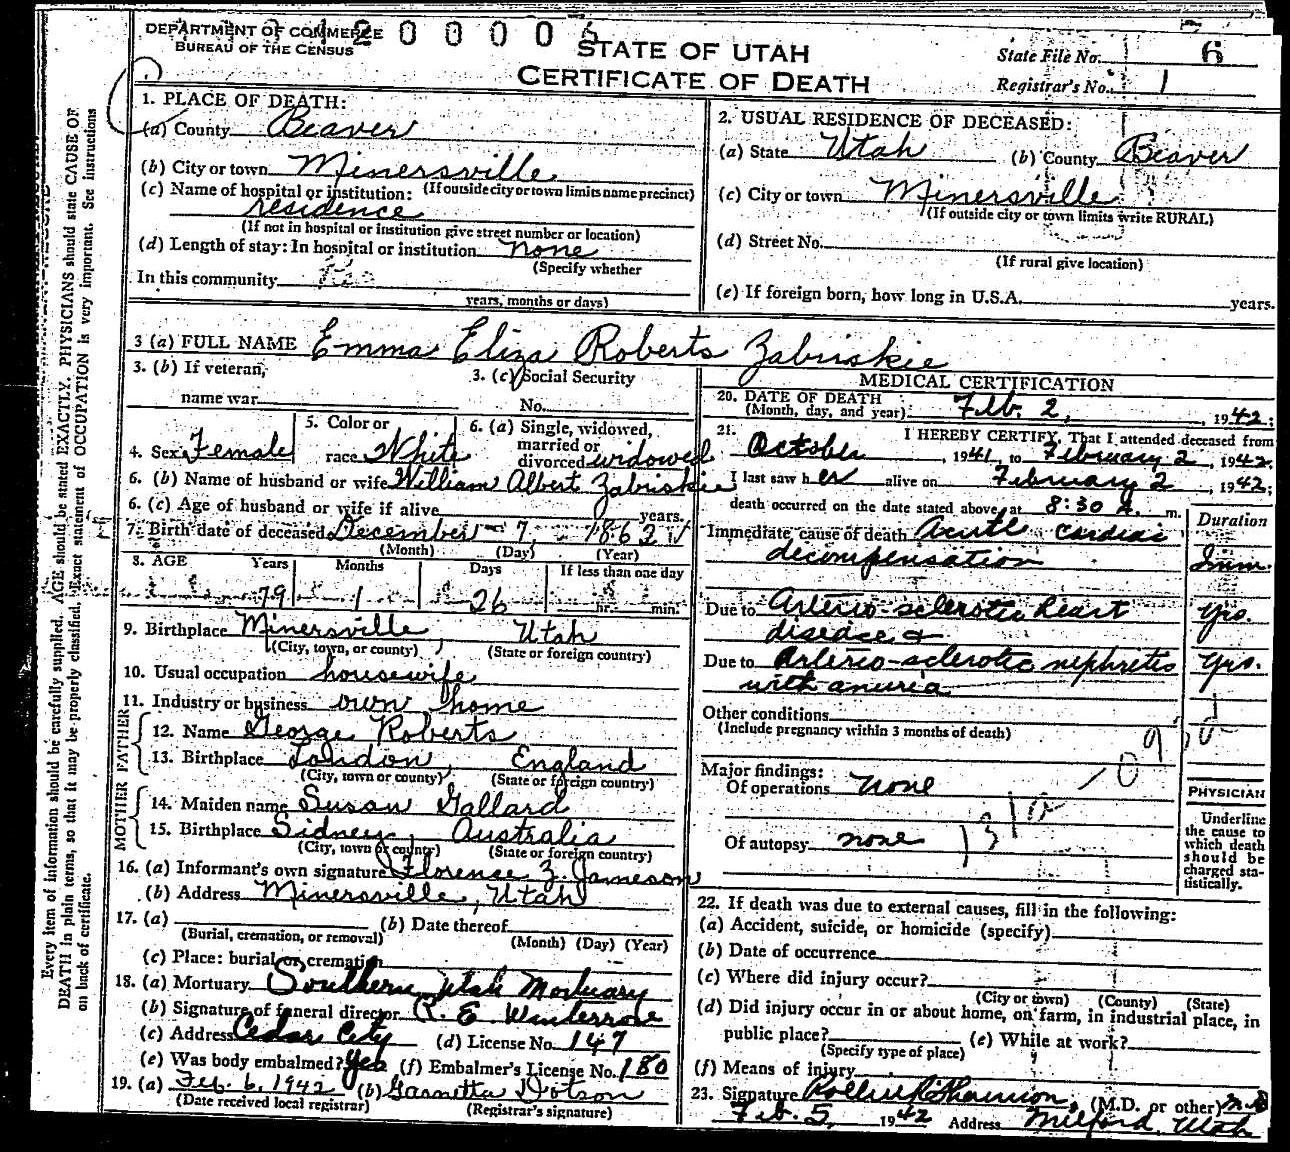 DEPARTMENT OF COMMERCE
BUREAU OF THE CENSUS
STATE OF UTAH
CERTIFICATE OF DEATH
State File No. 6
Registrar's No. 1
1. PLACE OF DEATH:
(a) County Beaver
(b) City or town Minersville
(If outside city or town limits name precinct)
(c) Name of hospital or institution:
residence
(If not in hospital or institution give street number or location)
(d) Length of stay: In hospital or institution none
(Specify whether
In this community
years, months or days)
2. USUAL RESIDENCE OF DECEASED:
(a) State Utah (b) County Beaver
(c) City or town Minersville
(If outside city or town limits write RURAL)
(d) Street No.
(If rural give location)
(e) If foreign born, how long in U.S.A. years.
3 (a) FULL NAME Emma Eliza Roberts Zabriskie
3. (b) If veteran,
name war
3. (c) Social Security
No.
4. Sex Female
5. Color or
race White
6. (a) Single, widowed,
married or
divorced widowed
6. (b) Name of husband or wife William Albert Zabriskie
6. (c) Age of husband or wife if alive years.
7. Birth date of deceased December 7, 1862
(Month) (Day) (Year)
8. AGE Years Months Days If less than one day
79 1 26 hr. min.
9. Birthplace Minersville, Utah
(City, town, or county) (State or foreign country)
10. Usual occupation housewife
11. Industry or business own home
FATHER
12. Name George Roberts
13. Birthplace London, England
(City, town or county) (State or foreign country)
MOTHER
14. Maiden name Susan Gallard
15. Birthplace Sidney, Australia
(City, town or county) (State or foreign country)
16. (a) Informant's own signature Florence Z. Jameson
(b) Address Minersville, Utah
17. (a) (b) Date thereof
(Burial, cremation, or removal) (Month) (Day) (Year)
(c) Place: burial or cremation
18. (a) Mortuary Southern Utah Mortuary
(b) Signature of funeral director R. E. Winterrose
(c) Address Cedar City (d) License No. 147
(e) Was body embalmed? Yes (f) Embalmer's License No. 180
19. (a) Feb. 6, 1942 (b) Garnetta Dotson
(Date received local registrar) (Registrar's signature)
MEDICAL CERTIFICATION
20. DATE OF DEATH
(Month, day, and year): Feb. 2, 1942;
21. I HEREBY CERTIFY, That I attended deceased from
October, 1941, to February 2, 1942.
I last saw her alive on February 2, 1942;
death occurred on the date stated above, at 8:30 A. m.
Duration
Immediate cause of death Acute cardiac
decompensation Imm.
Due to Arterio-sclerotic heart yrs.
disease &
Due to Arterio-sclerotic nephritis yrs.
with anuria
Other conditions
(Include pregnancy within 3 months of death)
Major findings:
Of operations none
Of autopsy none
PHYSICIAN
Underline
the cause to
which death
should be
charged sta-
tistically.
22. If death was due to external causes, fill in the following:
(a) Accident, suicide, or homicide (specify)
(b) Date of occurrence
(c) Where did injury occur?
(City or town) (County) (State)
(d) Did injury occur in or about home, on farm, in industrial place, in
public place? (e) While at work?
(Specify type of place)
(f) Means of injury
23. Signature (M.D. or other) M.D.
Feb. 5, 1942 Address Milford, Utah
Every item of information should be carefully supplied. AGE should be stated EXACTLY. PHYSICIANS should state CAUSE OF
DEATH in plain terms, so that it may be properly classified. Exact statement of OCCUPATION is very important. See instructions
on back of certificate.